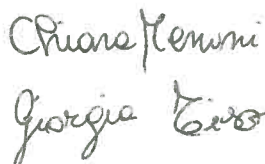 Chiara Menoni
Giorgia Tiso